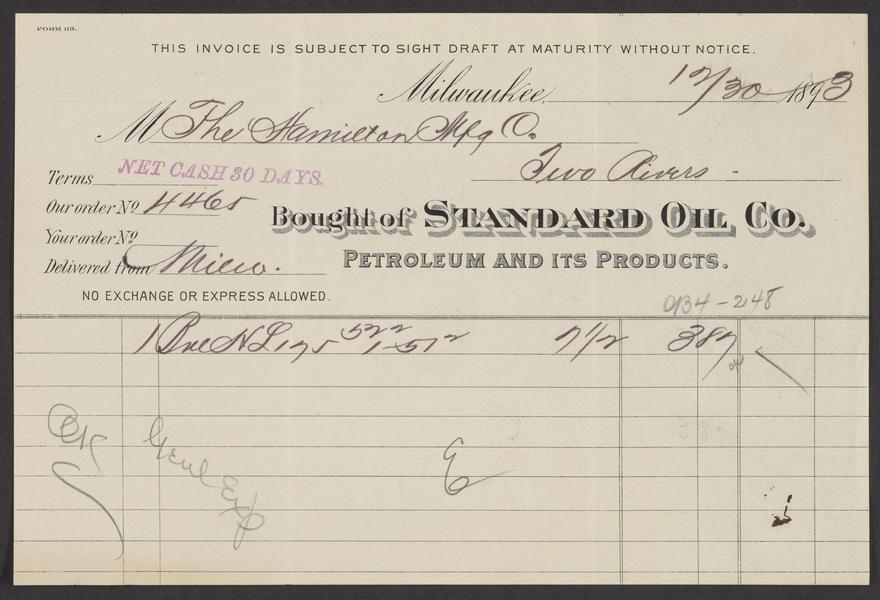 FORM 119.
THIS INVOICE IS SUBJECT TO SIGHT DRAFT AT MATURITY WITHOUT NOTICE.
Milwaukee, 12/30 1893
M The Hamilton Mfg Co.
Two Rivers -
Terms NET CASH 30 DAYS.
Our order No 4465
Bought of STANDARD OIL CO.
Your order No
PETROLEUM AND ITS PRODUCTS.
Delivered from Milw.
NO EXCHANGE OR EXPRESS ALLOWED.
934-248
1 175 7 1/2 387
OK
Genl Exp